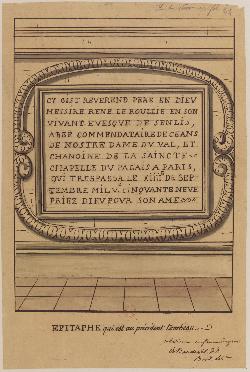 CY GIST REVEREND PERE EN DIEV
MESSIRE RENE LE ROVLLIE EN SON
VIVANT EVESQVE DE SENLIS,
ABBE COMMENDATAIRE DE CEANS
DE NOSTRE DAME DV VAL, ET
CHANOINE DE LA SAINCTE
CHAPELLE DV PALAIS A PARIS,
QVI TRESPASSA LE DE SEP
TEMBRE MIL V. CINQVANTE NEVF
PRIEZ DIEV POVR SON AME
EPITAPHE qui est au précédent Tombeau.